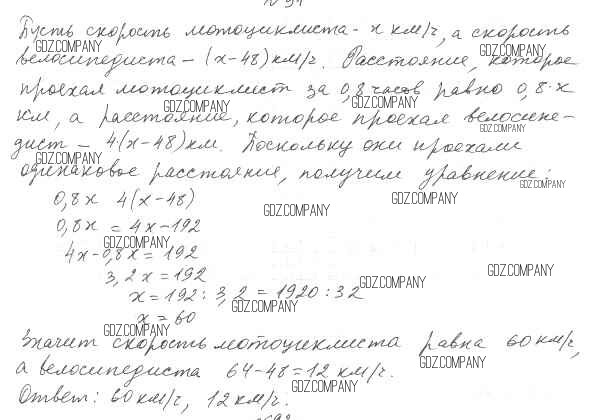 Пусть скорость мотоциклиста - x км/ч, а скорость
GDZ.COMPANY GDZ.COMPANY
велосипедиста - (x-48) км/ч. Расстояние, которое
проехал мотоциклист за 0,8 часов равно 0,8·x
GDZ.COMPANY GDZ.COMPANY
км, а расстояние, которое проехал велосипе-
GDZ.COMPANY
дист - 4(x-48) км. Поскольку они проехали
GDZ.COMPANY
одинаковое расстояние, получим уравнение:
GDZ.COMPANY
0,8x 4(x-48)
GDZ.COMPANY GDZ.COMPANY
0,8x = 4x-192
GDZ.COMPANY
4x-0,8x = 192
GDZ.COMPANY
3,2x = 192
GDZ.COMPANY
x = 192 : 3,2 = 1920 : 32
GDZ.COMPANY
x = 60
GDZ.COMPANY
Значит скорость мотоциклиста равна 60 км/ч,
GDZ.COMPANY
а велосипедиста 64-48=12 км/ч.
GDZ.COMPANY
Ответ: 60 км/ч, 12 км/ч.